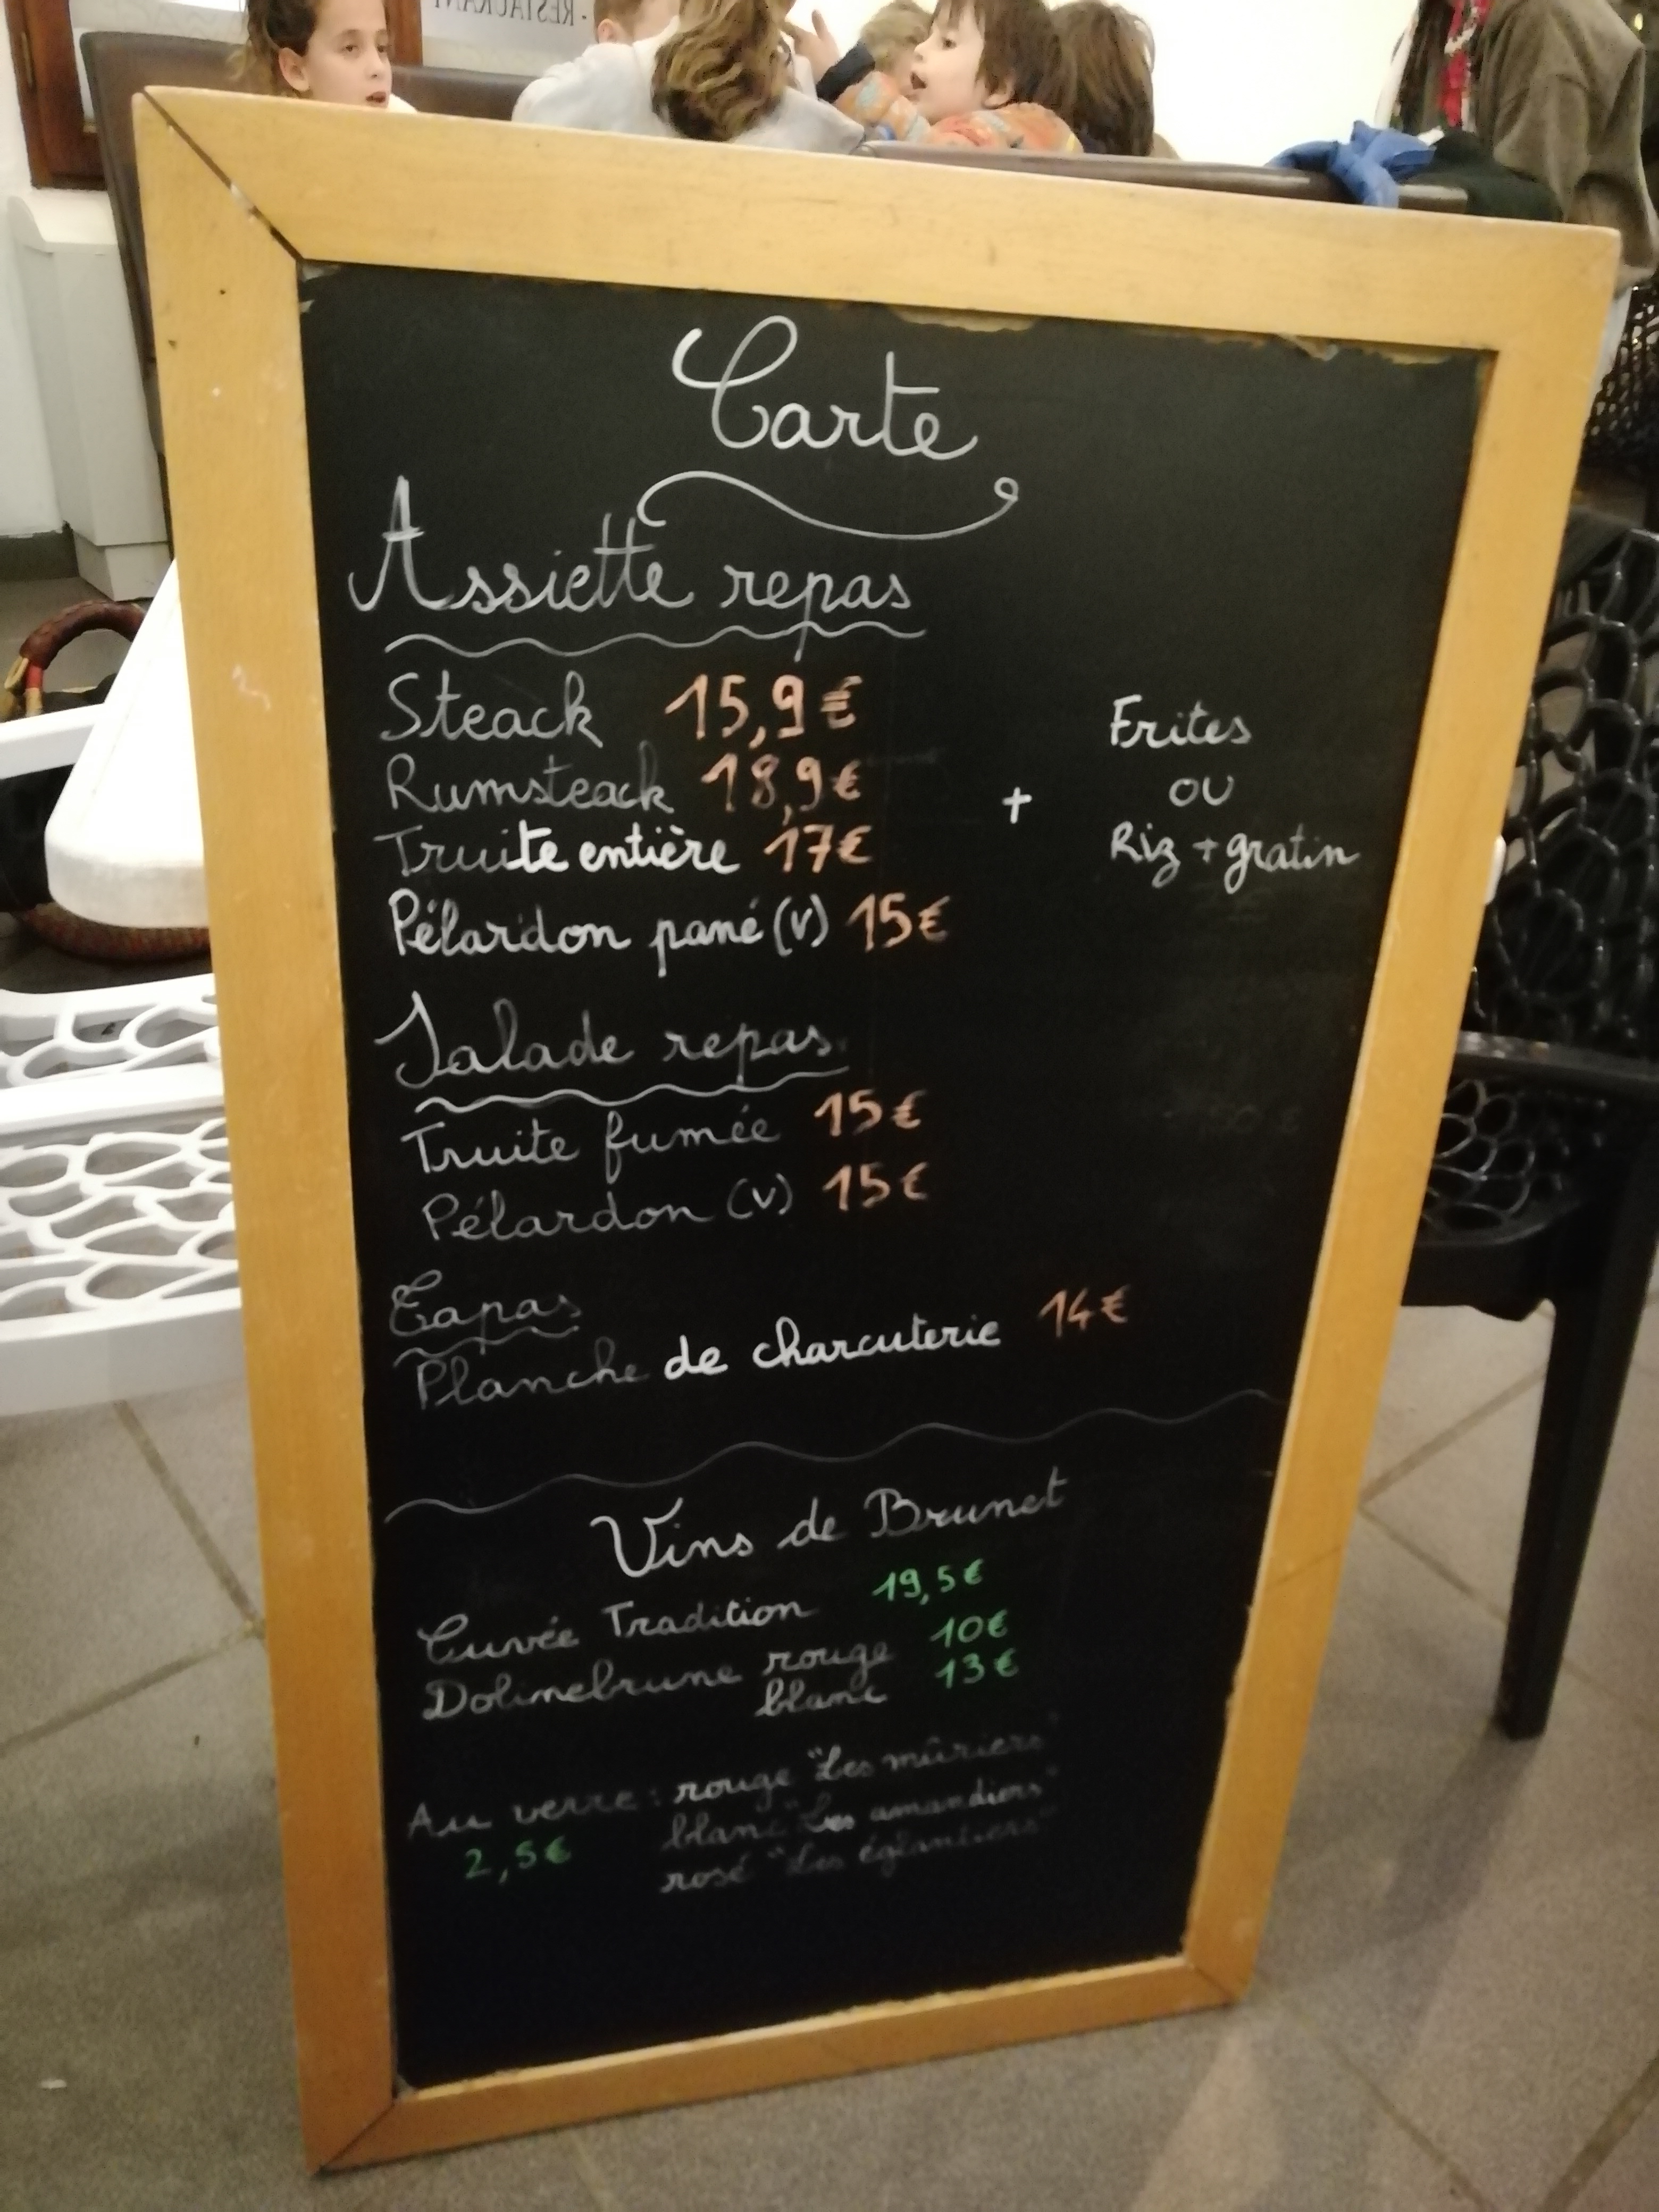 - RESTAURANT
Carte
Assiette repas
Steack 15,9€
Rumsteack 18,9€
Truite entière 17€
Pélardon pané (v) 15€
+
Frites
ou
Riz + gratin
Salade repas
Truite fumée 15€
Pélardon (v) 15€
Tapas
Planche de charcuterie 14€
Vins de Brunet
Cuvée Tradition 19,5€
Dolinebrune rouge 10€
blanc 13€
Au verre : rouge "Les mûriers"
2,5€ blanc "Les amandiers"
rosé "Les églantiers"